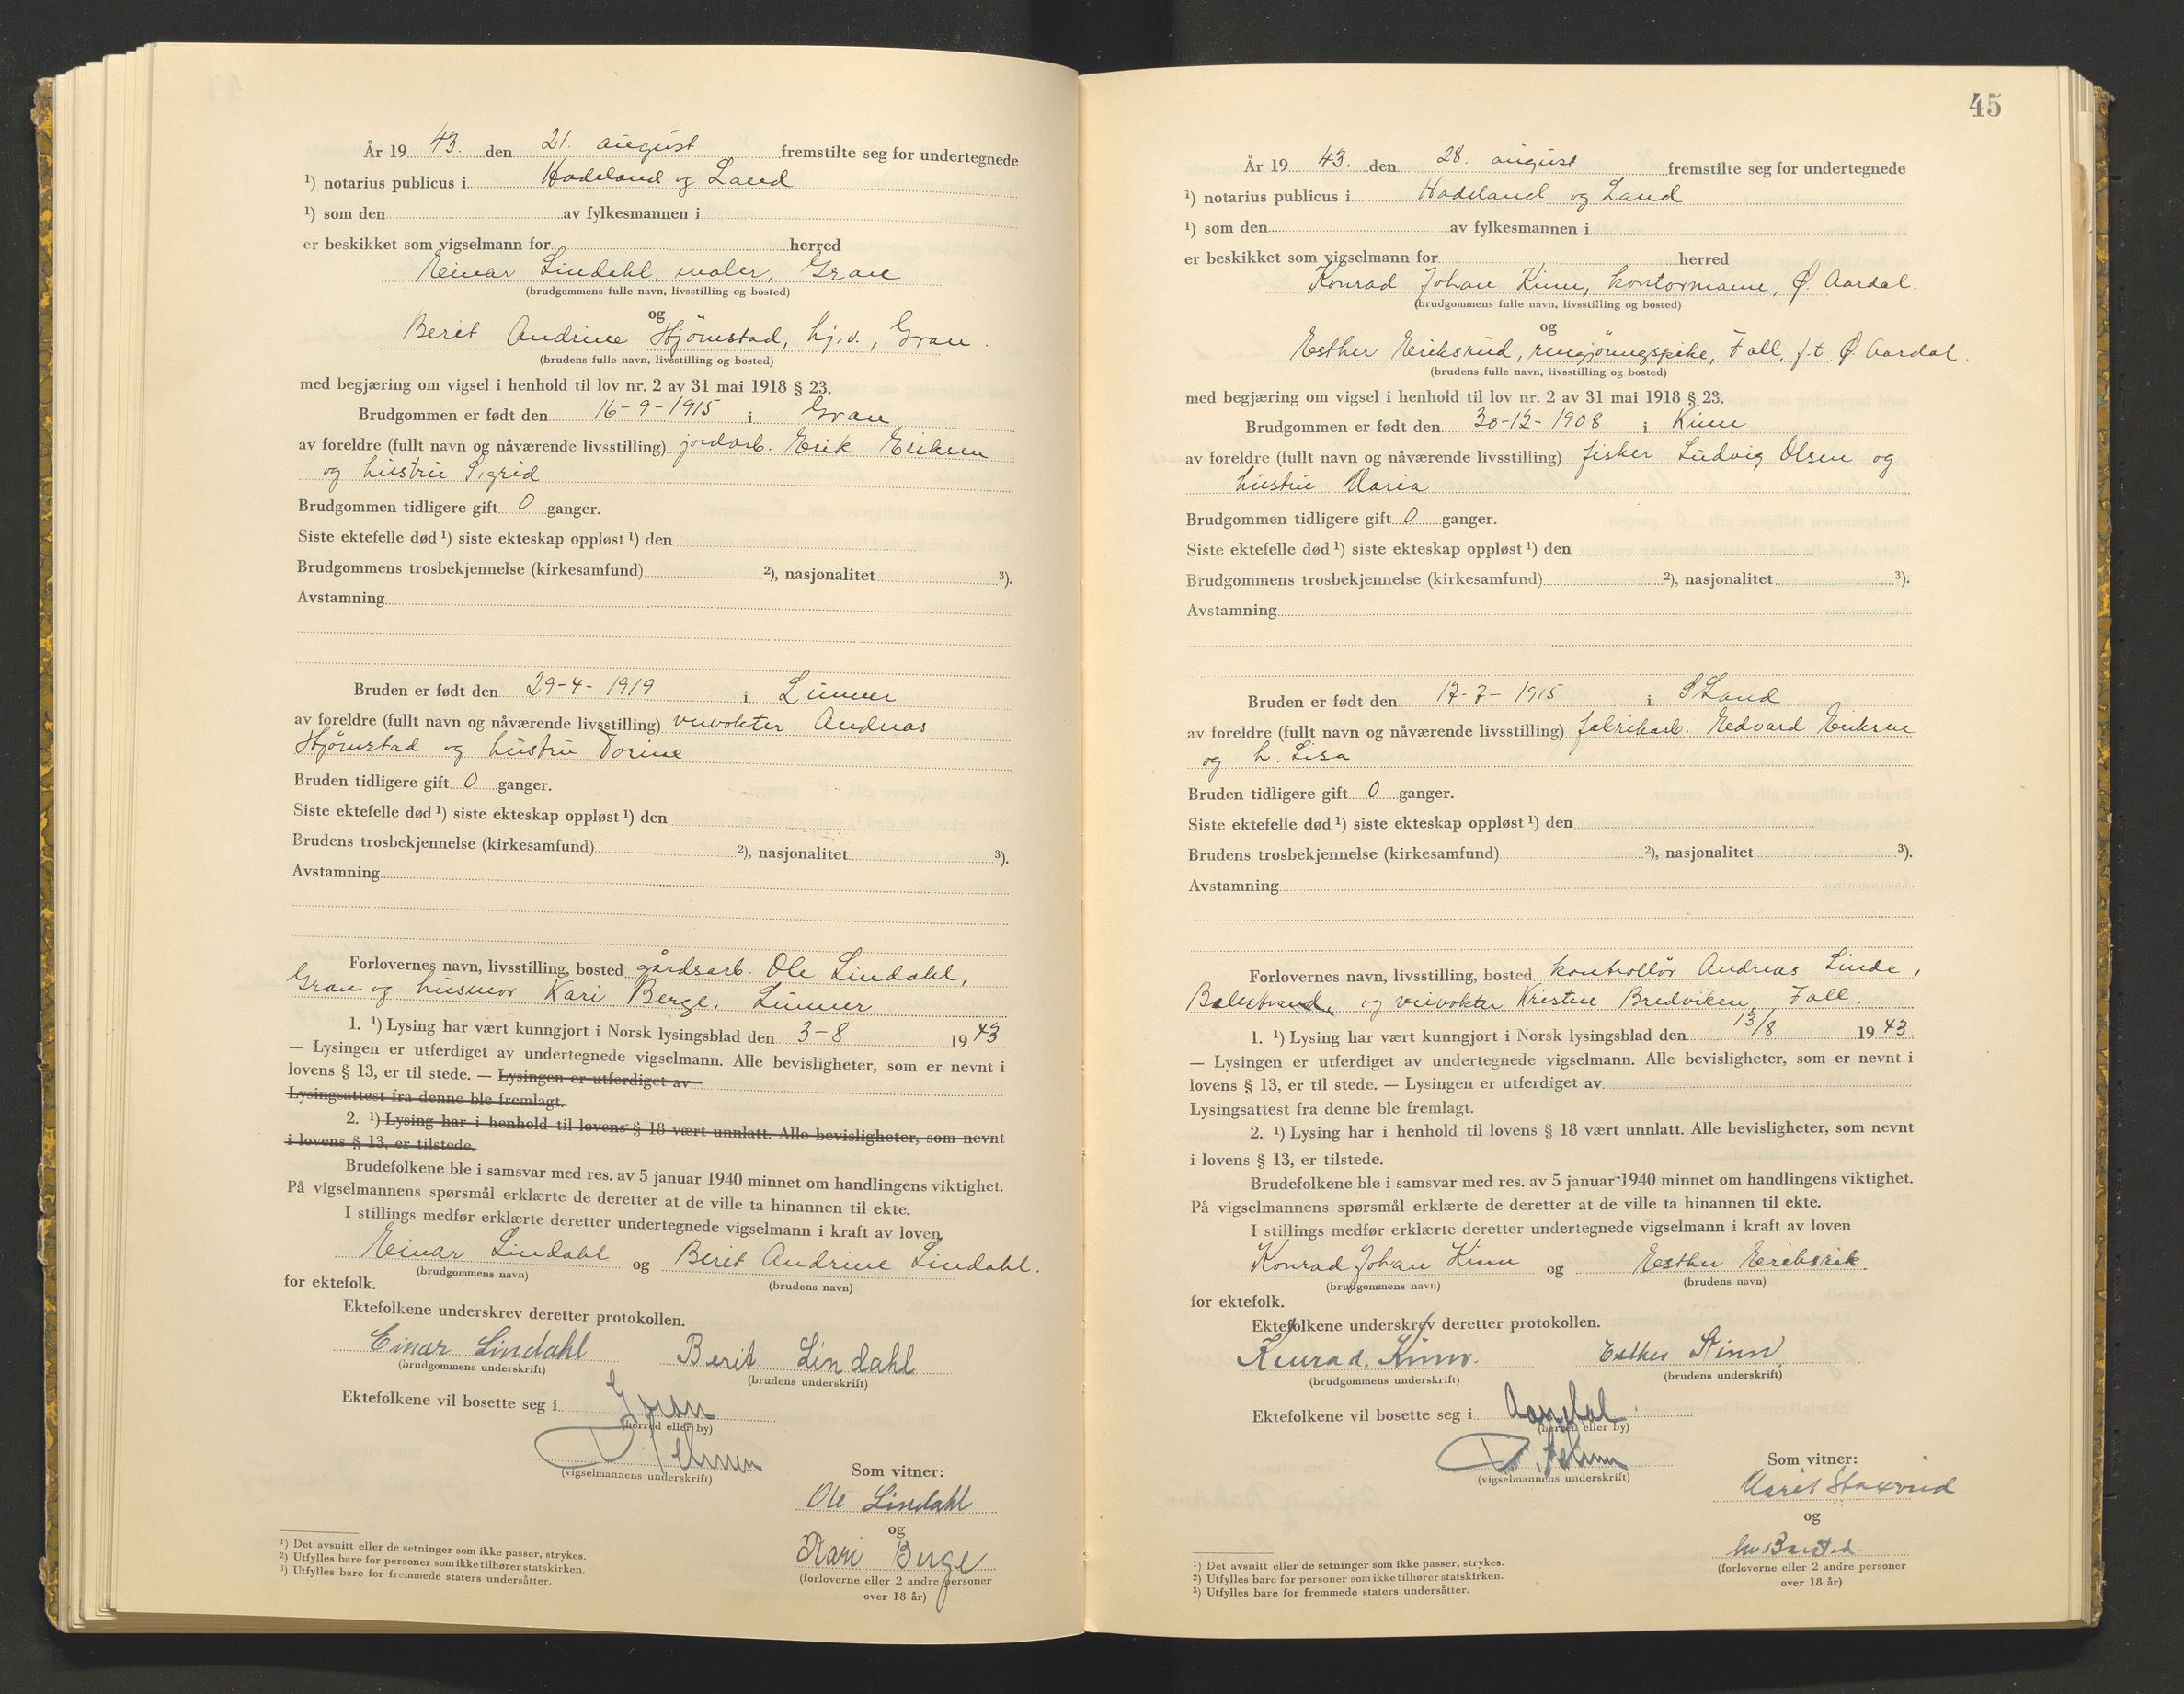 År 19 43. den 21. august fremstilte seg for undertegnede
¹) notarius publicus i Hadeland og Land
¹) som den av fylkesmannen i
er beskikket som vigselmann for herred
Einar Lindahl, maler, Gran
(brudgommens fulle navn, livsstilling og bosted)
og
Berit Andrine Hjørnstad, hj.v., Gran.
(brudens fulle navn, livsstilling og bosted)
med begjæring om vigsel i henhold til lov nr. 2 av 31 mai 1918 § 23.
Brudgommen er født den 16-9-1915 i Gran
av foreldre (fullt navn og nåværende livsstilling) jordarb. Erik Eriksen
og hustru Sigrid
Brudgommen tidligere gift 0 ganger.
Siste ektefelle død ¹) siste ekteskap oppløst ¹) den
Brudgommens trosbekjennelse (kirkesamfund) ²), nasjonalitet ³).
Avstamning
Bruden er født den 29-4-1919 i Lunner
av foreldre (fullt navn og nåværende livsstilling) veivokter Andreas
Hjørnstad og hustru Torine
Bruden tidligere gift 0 ganger.
Siste ektefelle død ¹) siste ekteskap oppløst ¹) den
Brudens trosbekjennelse (kirkesamfund) ²), nasjonalitet ³).
Avstamning
Forlovernes navn, livsstilling, bosted gårdsarb. Ole Lindahl,
Gran og husmor Kari Berge, Lunner
1. ¹) Lysing har vært kunngjort i Norsk lysingsblad den 3-8 19 43
— Lysingen er utferdiget av undertegnede vigselmann. Alle bevisligheter, som er nevnt i
lovens § 13, er til stede. — Lysingen er utferdiget av
Lysingsattest fra denne ble fremlagt.
2. ¹) Lysing har i henhold til lovens § 18 vært unnlatt. Alle bevisligheter, som nevnt
i lovens § 13, er tilstede.
Brudefolkene ble i samsvar med res. av 5 januar 1940 minnet om handlingens viktighet.
På vigselmannens spørsmål erklærte de deretter at de ville ta hinannen til ekte.
I stillings medfør erklærte deretter undertegnede vigselmann i kraft av loven
Einar Lindahl og Berit Andrine Lindahl.
(brudgommens navn) (brudens navn)
for ektefolk.
Ektefolkene underskrev deretter protokollen.
Einar Lindahl Berit Lindahl
(brudgommens underskrift) (brudens underskrift)
Ektefolkene vil bosette seg i Gran
(herred eller by)
(vigselmannens underskrift)
Som vitner:
Ole Lindahl
og
Kari Berge
(forloverne eller 2 andre personer
over 18 år)
¹) Det avsnitt eller de setninger som ikke passer, strykes.
²) Utfylles bare for personer som ikke tilhører statskirken.
³) Utfylles bare for fremmede staters undersåtter.
45
År 19 43. den 28. august fremstilte seg for undertegnede
¹) notarius publicus i Hadeland og Land
¹) som den av fylkesmannen i
er beskikket som vigselmann for herred
Konrad Johan Kinn, kontormann, Ø. Aardal.
(brudgommens fulle navn, livsstilling og bosted)
og
Esther Eriksrud, rengjøringspike, Fall, f.t. Ø. Aardal.
(brudens fulle navn, livsstilling og bosted)
med begjæring om vigsel i henhold til lov nr. 2 av 31 mai 1918 § 23.
Brudgommen er født den 30-12-1908 i Kinn
av foreldre (fullt navn og nåværende livsstilling) fisker Ludvig Olsen og
hustru Maria
Brudgommen tidligere gift 0 ganger.
Siste ektefelle død ¹) siste ekteskap oppløst ¹) den
Brudgommens trosbekjennelse (kirkesamfund) ²), nasjonalitet ³).
Avstamning
Bruden er født den 17-7-1915 i S Land
av foreldre (fullt navn og nåværende livsstilling) fabrikarb. Edvard Eriksen
og h. Lisa
Bruden tidligere gift 0 ganger.
Siste ektefelle død ¹) siste ekteskap oppløst ¹) den
Brudens trosbekjennelse (kirkesamfund) ²), nasjonalitet ³).
Avstamning
Forlovernes navn, livsstilling, bosted kontrollör Andreas Linde,
Balestrand, og veivokter Kristen Bredviken, Fall.
1. ¹) Lysing har vært kunngjort i Norsk lysingsblad den 13/8 19 43.
— Lysingen er utferdiget av undertegnede vigselmann. Alle bevisligheter, som er nevnt i
lovens § 13, er til stede. — Lysingen er utferdiget av
Lysingsattest fra denne ble fremlagt.
2. ¹) Lysing har i henhold til lovens § 18 vært unnlatt. Alle bevisligheter, som nevnt
i lovens § 13, er tilstede.
Brudefolkene ble i samsvar med res. av 5 januar 1940 minnet om handlingens viktighet.
På vigselmannens spørsmål erklærte de deretter at de ville ta hinannen til ekte.
I stillings medfør erklærte deretter undertegnede vigselmann i kraft av loven
Konrad Johan Kinn og Esther
(brudgommens navn) (brudens navn)
for ektefolk.
Ektefolkene underskrev deretter protokollen.
Konrad. Kinn. Esther Kinn
(brudgommens underskrift) (brudens underskrift)
Ektefolkene vil bosette seg i Aardal.
(herred eller by)
(vigselmannens underskrift)
Som vitner:
Marit
og
(forloverne eller 2 andre personer
over 18 år)
¹) Det avsnitt eller de setninger som ikke passer, strykes.
²) Utfylles bare for personer som ikke tilhører statskirken.
³) Utfylles bare for fremmede staters undersåtter.